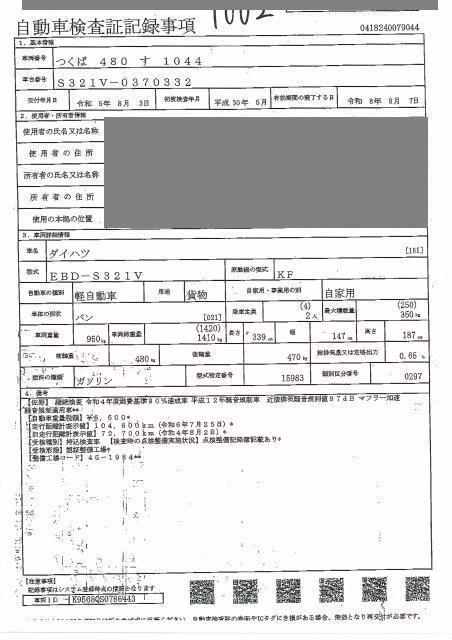 1002
自動車検査証記録事項
0418240079044
1．基本情報
車両番号 つくば 480 す 1044
車台番号 S321V-0370332
交付年月日 令和 5年 8月 3日 初度検査年月 平成 30年 5月 有効期間の満了する日 令和 8年 8月 7日
2．使用者・所有者情報
使用者の氏名又は名称
使用者の住所
所有者の氏名又は名称
所有者の住所
使用の本拠の位置
3．車両詳細情報
車名 ダイハツ [151]
型式 EBD-S321V 原動機の型式 KF
自動車の種別 軽自動車 用途 貨物 自家用・事業用の別 自家用
車体の形状 バン [021] 乗車定員 (4) 2人 最大積載量 (250) 350kg
車両重量 950kg 車両総重量 (1420) 1410kg 長さ 339cm 幅 147cm 高さ 187cm
前軸重 480kg 後軸重 470kg 総排気量又は定格出力 0.65L
燃料の種類 ガソリン 型式指定番号 15983 類別区分番号 0297
4．備考
【佐野】 継続検査 令和4年度燃費基準90％達成車 平成12年騒音規制車 近接排気騒音規制値97dB マフラー加速
騒音規制適用車**
【自動車重量税額】¥6，600*
【走行距離計表示値】104，600km（令和6年7月25日）*
【旧走行距離計表示値】72，700km（令和4年8月2日）*
【受検種別】持込検査車 【検査時の点検整備実施状況】点検整備記録簿記載あり*
【受検形態】認証整備工場*
【整備工場コード】46-1984**
【注意事項】
記録事項はシステム登録時点の情報となります
車両ID K9568QS0786443
自動車検査証の券面やICタグに き損がある場合、無効となり再交付が必要です。